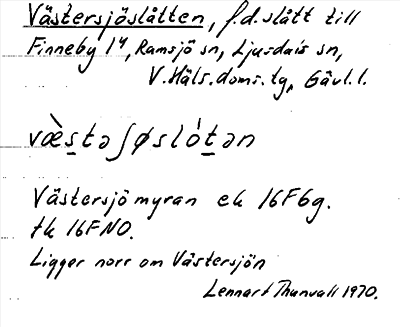 Västersjöslåtten, f.d. slått till
Finneby 1⁴, Ramsjö sn, Ljusdals sn,
V. Häls. doms. tg, Gävl. l.
væ̀s̲təʃøslót̲ən
Västersjömyran ek 16F6g.
tk 16FNO.
Ligger norr om Västersjön
Lennart Thunvall 1970.